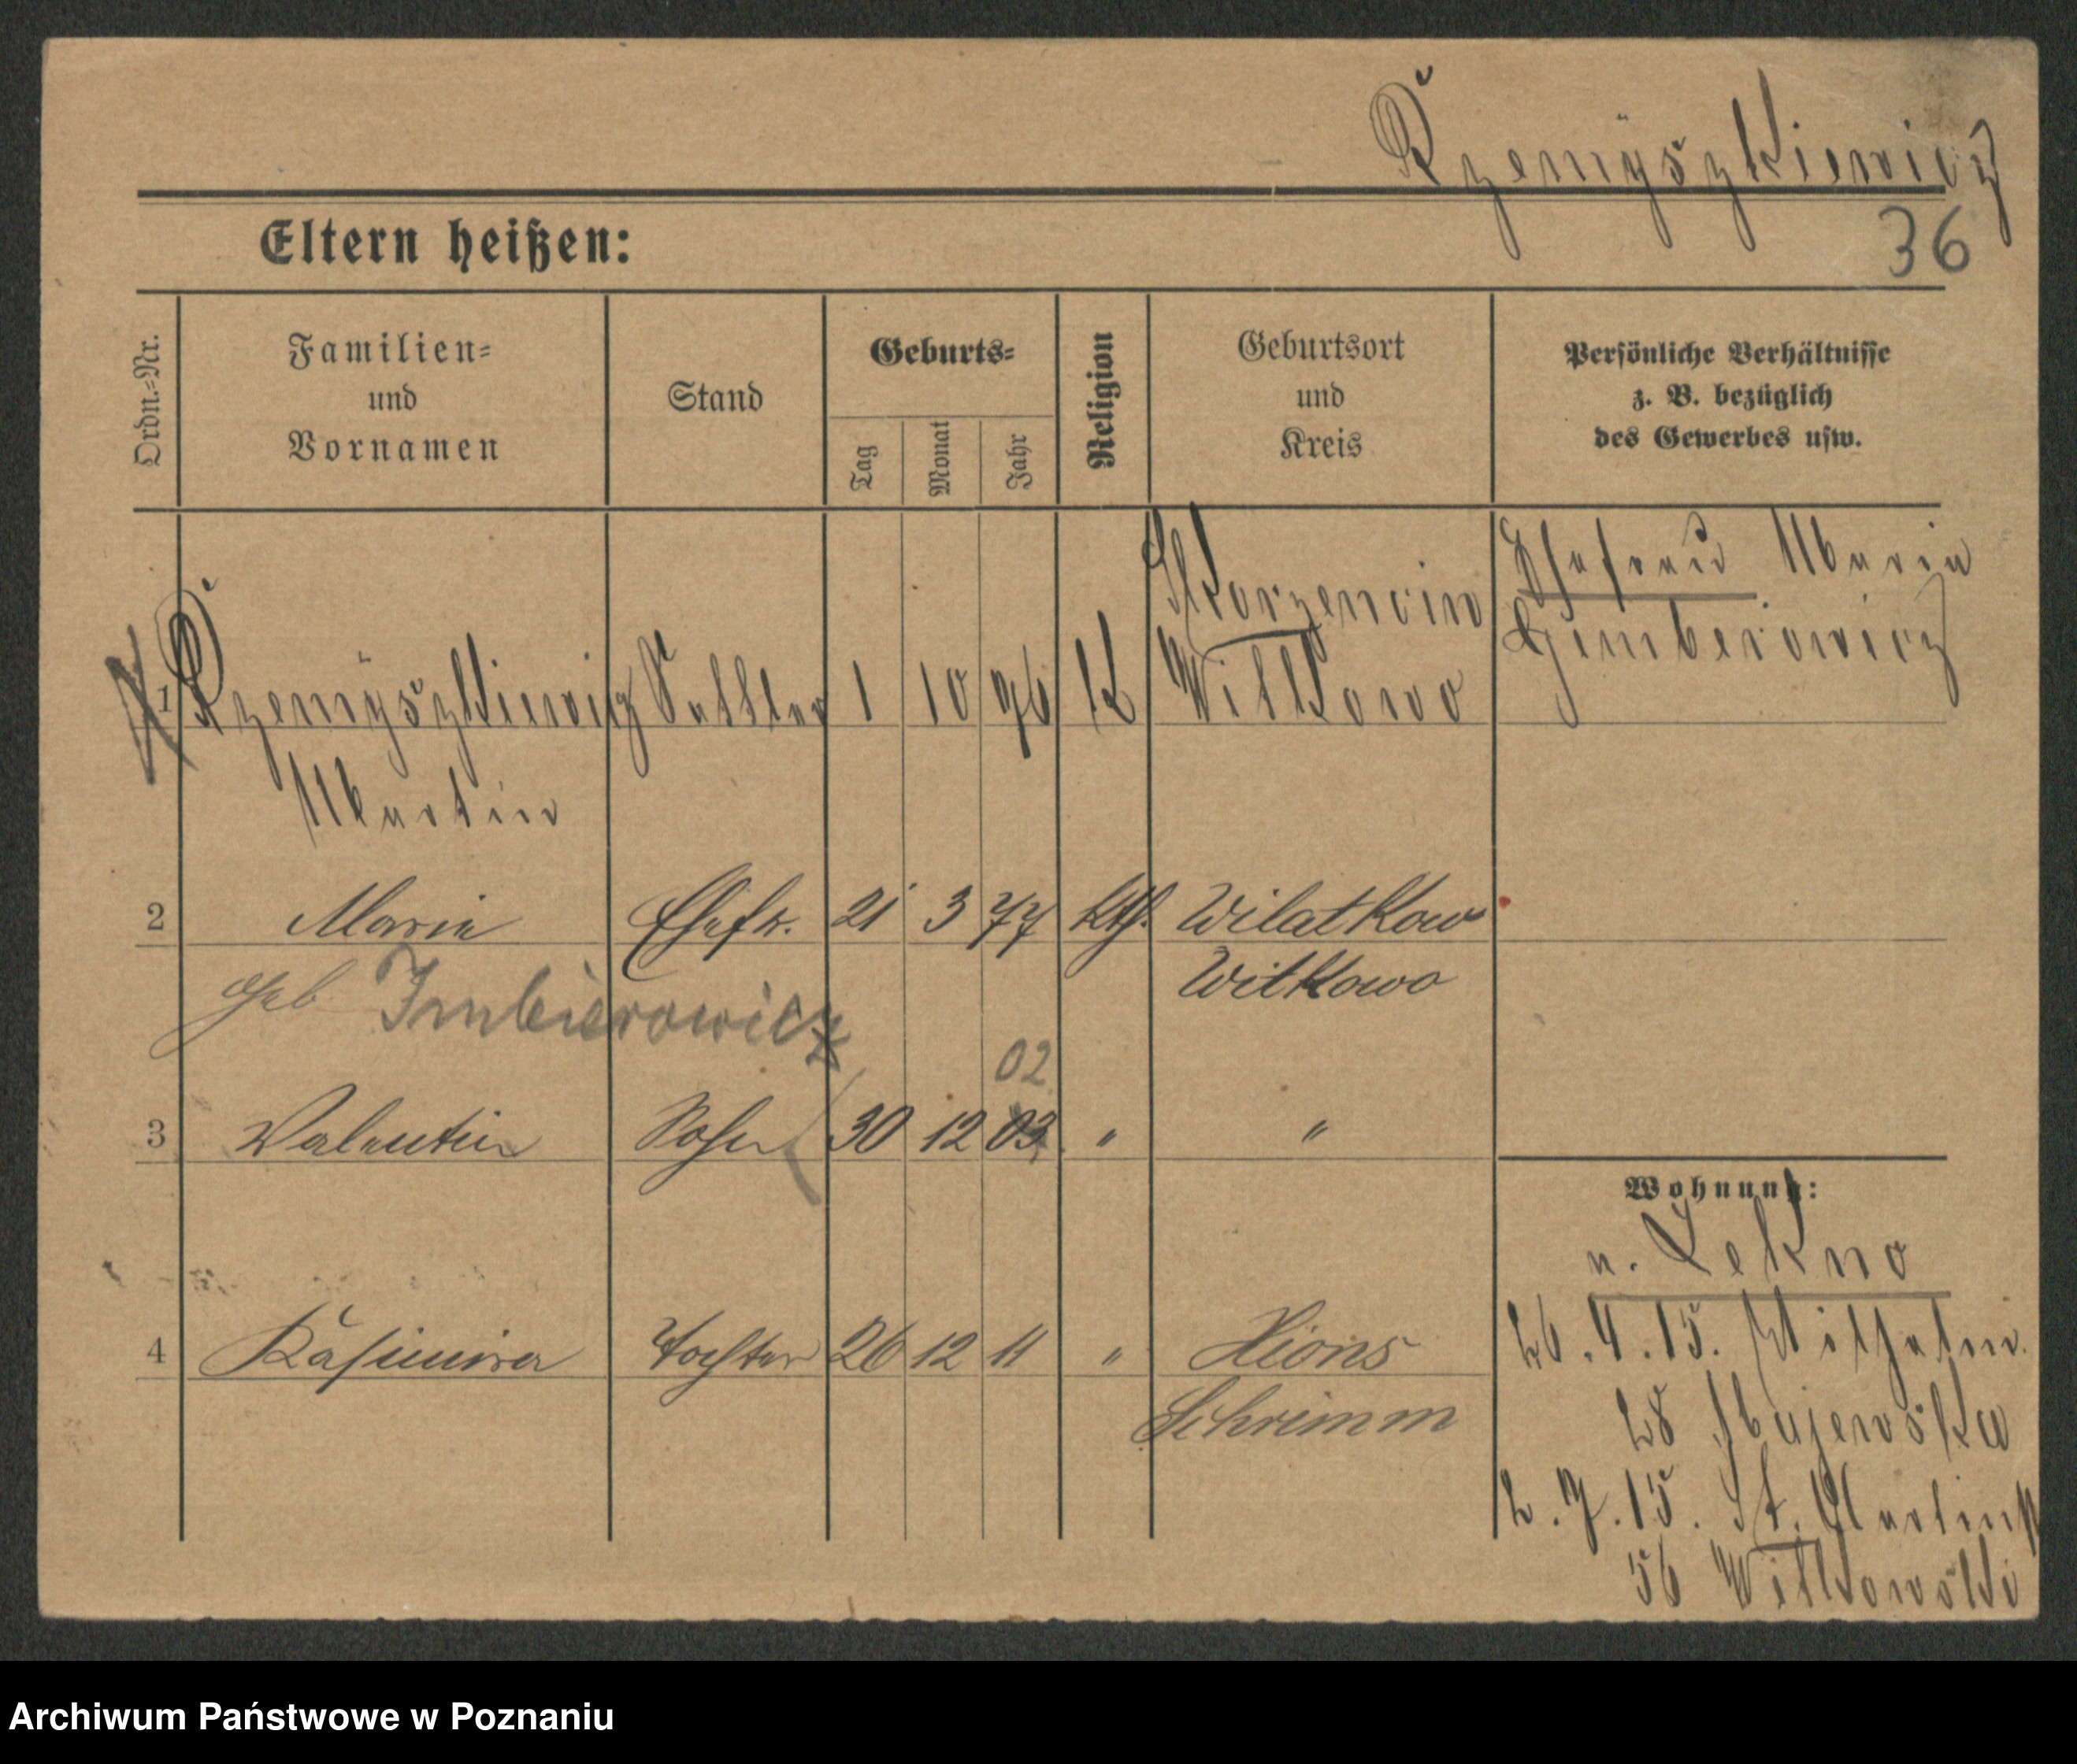 Rzemyszkiewicz
36
Eltern heißen:
Ordn.-Nr.
Familien-
und
Vornamen
Stand
Geburts-
Tag
Monat
Jahr
Religion
Geburtsort
und
Kreis
Persönliche Verhältnisse
z. B. bezüglich
des Gewerbes usw.
1 Rzemyszkiewicz Sattler 1 10 76 k Skorzencin Witkowo
Ehefrau Maria
Gimberowicz
Martin
2 Maria Ehefr. 21 3 77 kth. Wilatkow
geb Imbierowicz Witkowo
02
3 Valentin Sohn 30 12 03 " "
4 Kasimira Tochter 26 12 11 " Xions
Schrimm
Wohnung:
v. Lekno
26.4.15. Wilhelm.
28 Majewska
2.7.15. St. Martinst
56 Witkowski
Archiwum Państwowe w Poznaniu